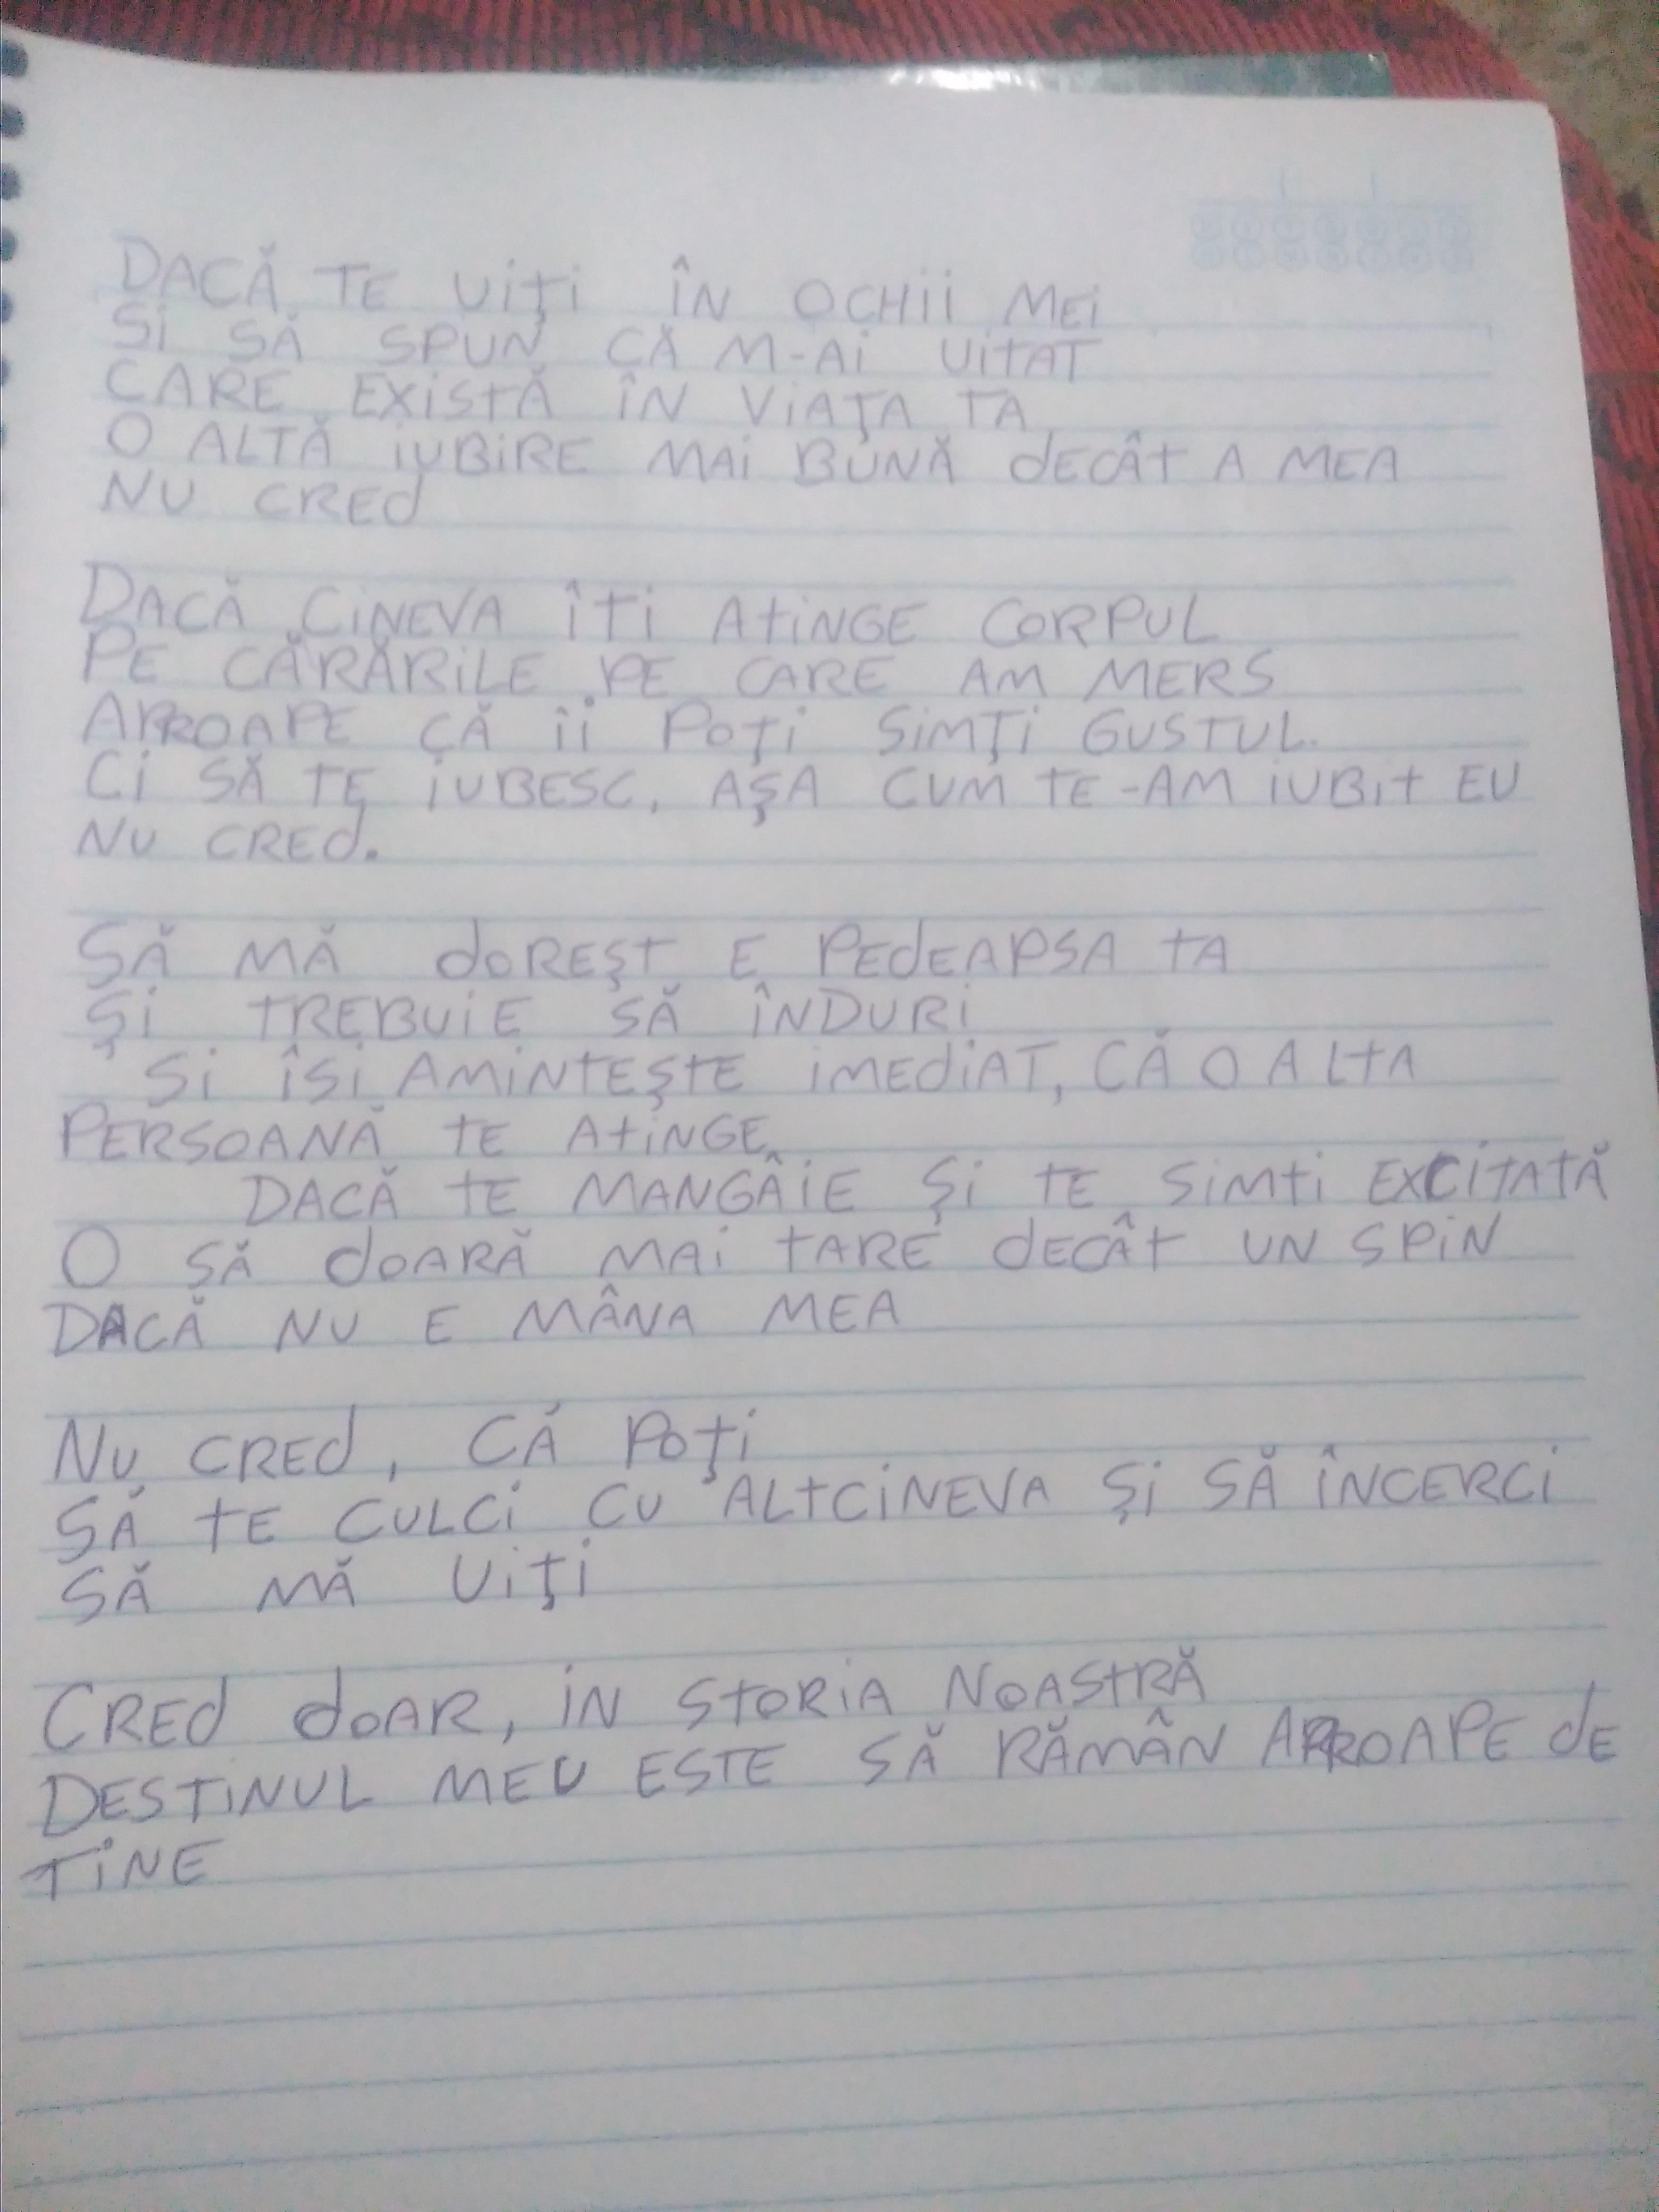 DACĂ TE UIŢI ÎN OCHII MEI
SI SĂ SPUN CĂ M-AI UITAT
CARE EXISTĂ ÎN VIAŢA TA
O ALTĂ IUBIRE MAI BUNĂ DECÂT A MEA
NU CRED
DACĂ CINEVA ÎTI ATINGE CORPUL
PE CĂRĂRILE PE CARE AM MERS
APROAPE CĂ ÎI POŢI SIMŢI GUSTUL.
CI SĂ TE IUBESC, AŞA CUM TE-AM IUBIT EU
NU CRED.
SĂ MĂ DOREŞT E PEDEAPSA TA
ŞI TREBUIE SĂ ÎNDURI
SI ÎSI AMINTEŞTE IMEDIAT, CĂ O ALTA
PERSOANĂ TE ATINGE
DACĂ TE MANGÂIE ŞI TE SIMTI EXCITATĂ
O SĂ DOARĂ MAI TARE DECÂT UN SPIN
DACĂ NU E MÂNA MEA
NU CRED, CĂ POŢI
SĂ TE CULCI CU ALTCINEVA ŞI SĂ ÎNCERCI
SĂ MĂ UIŢI
CRED DOAR, IN STORIA NOASTRĂ
DESTINUL MEU ESTE SĂ RĂMÂN APROAPE DE
TINE